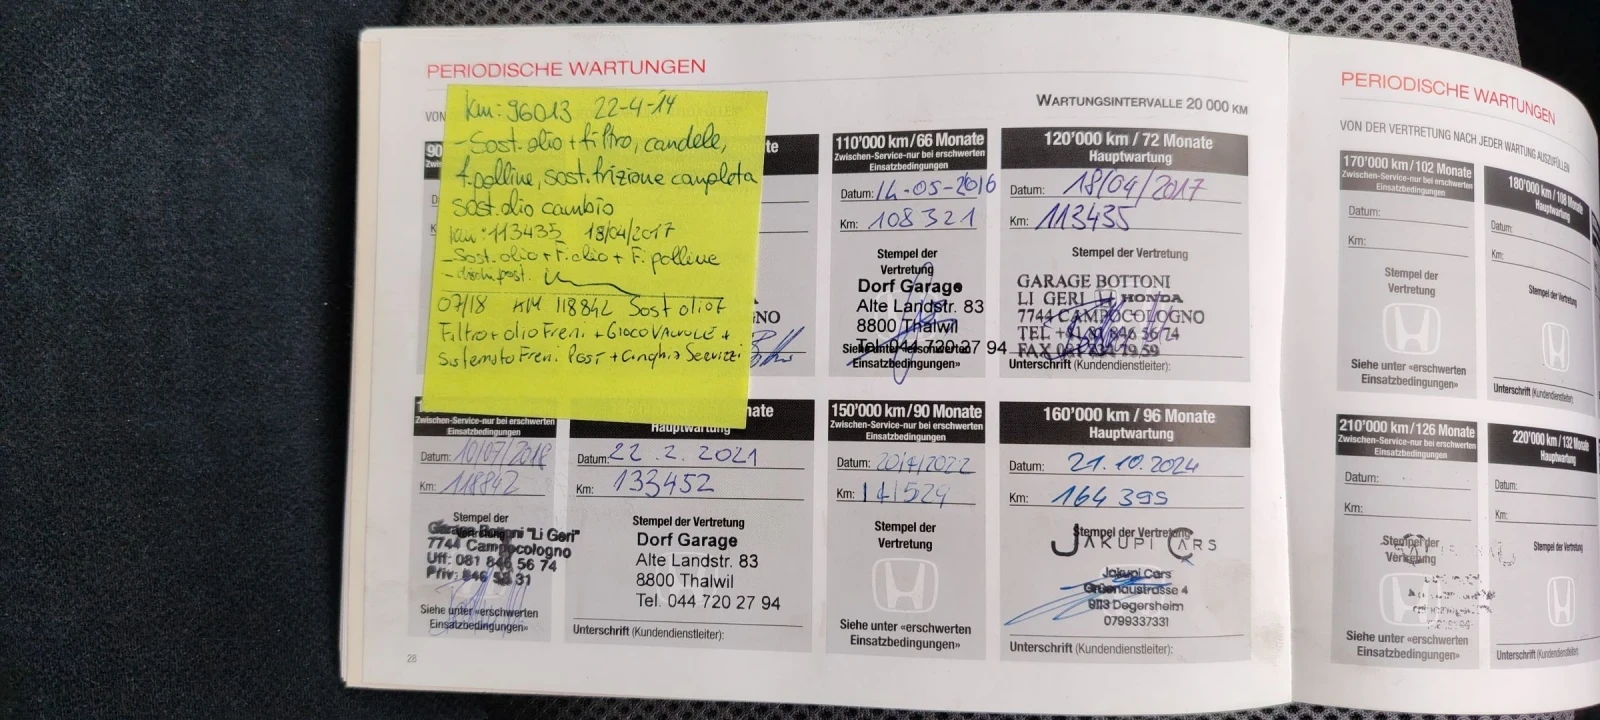 PERIODISCHE WARTUNGEN
WARTUNGSINTERVALLE 20 000 KM
VON
km: 96013 22-4-14
- Sost. olio + filtro, candele,
f. polline, sost. frizione completa
sost. olio cambio
km: 113435 18/04/2017
- Sost. olio + F. olio + F. polline
- dischi post.
07/18 KM 118842 Sost olio +
Filtro + olio Freni + GIOCO VALVOLE +
Sistemato Freni Post + Cinghia Servizi
90
te
GNO
110'000 km / 66 Monate
Zwischen-Service-nur bei erschwerten
Einsatzbedingungen
Datum: 14-05-2016
Km: 108321
Stempel der
Vertretung
Dorf Garage
Alte Landstr. 83
8800 Thalwil
Tel. 044 720 27 94
Siehe unter «erschwerten
Einsatzbedingungen»
120'000 km / 72 Monate
Hauptwartung
Datum: 18/04/2017
Km: 113435
Stempel der Vertretung
GARAGE BOTTONI
LI GERI HONDA
7744 CAMPOCOLOGNO
TEL +41 81 846 56 74
FAX
Unterschrift (Kundendienstleiter):
Zwischen-Service-nur bei erschwerten
Einsatzbedingungen
Datum: 10/07/2018
Km: 118842
Stempel der
Vertretung
Garage Bottoni "Li Geri"
7744 Campocologno
Uff: 081 846 56 74
Priv: 846 58 31
Siehe unter «erschwerten
Einsatzbedingungen»
nate
Hauptwartung
Datum: 22.2.2021
Km: 133452
Stempel der Vertretung
Dorf Garage
Alte Landstr. 83
8800 Thalwil
Tel. 044 720 27 94
Unterschrift (Kundendienstleiter):
150'000 km / 90 Monate
Zwischen-Service-nur bei erschwerten
Einsatzbedingungen
Datum: 20/4/2022
Km: 141529
Stempel der
Vertretung
Siehe unter «erschwerten
Einsatzbedingungen»
160'000 km / 96 Monate
Hauptwartung
Datum: 21.10.2024
Km: 164 395
Stempel der Vertretung
JAKUPI CARS
Jakupi Cars
Grünaustrasse 4
9113 Degersheim
0799337331
Unterschrift (Kundendienstleiter):
28
PERIODISCHE WARTUNGEN
VON DER VERTRETUNG NACH JEDER WARTUNG AUSZUFÜLLEN
170'000 km / 102 Monate
Zwischen-Service-nur bei erschwerten
Einsatzbedingungen
Datum:
Km:
Stempel der
Vertretung
Siehe unter «erschwerten
Einsatzbedingungen»
180'000 km / 108 Monate
Hauptwartung
Datum:
Km:
Stempel der Vertretung
Unterschrift (Kundendienstleiter):
210'000 km / 126 Monate
Zwischen-Service-nur bei erschwerten
Einsatzbedingungen
Datum:
Km:
Stempel der
Vertretung
Siehe unter «erschwerten
Einsatzbedingungen»
220'000 km / 132 Monate
Hauptwartung
Datum:
Km:
Stempel der Vertretung
Unterschrift (Kundendienstleiter):